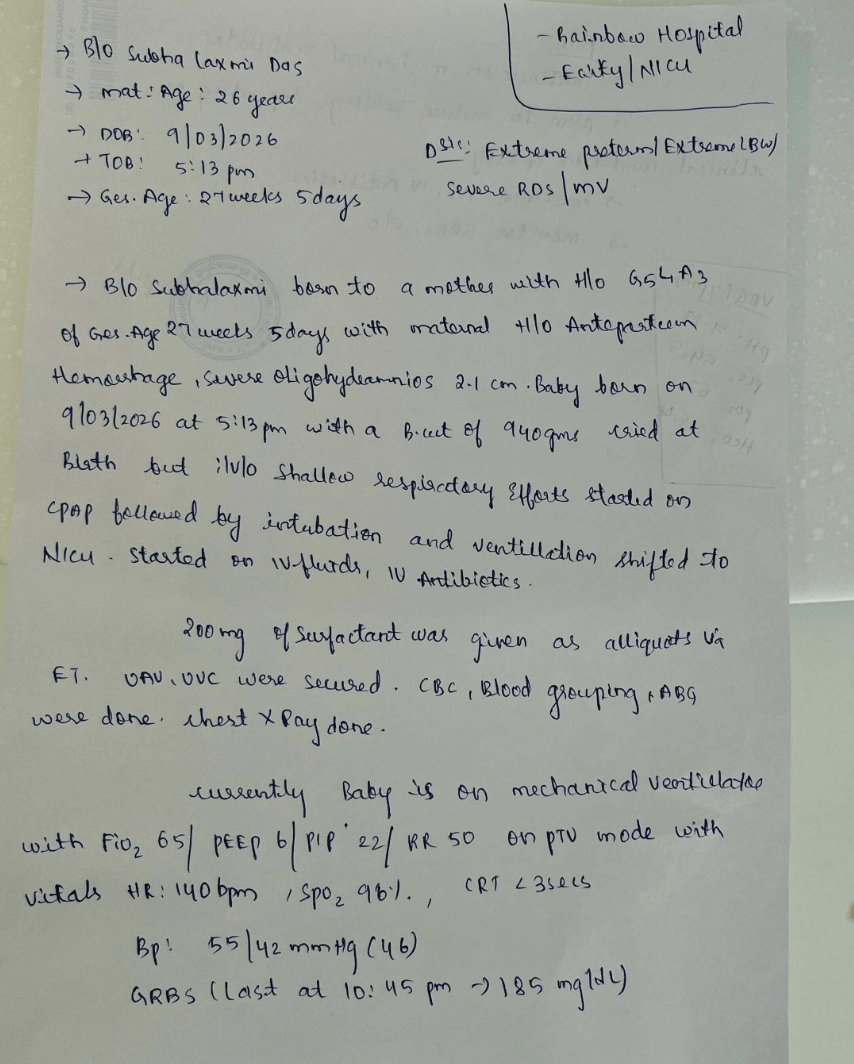 - Rainbow Hospital
- /NICU
→ B/O Subha Laxmi Das
→ mat: Age: 26 years
→ DOB: 9/03/2026
→ TOB: 5:13 pm
→ Ges. Age: 27 weeks 5 days
Δsis: Extreme preterm/Extreme LBW/
Severe RDS/MV
→ B/O Subhalaxmi born to a mother with H/o G5 A3
of Ges. Age 27 weeks 5 days with maternal H/O Antepartum
Hemorrhage, Severe Oligohydramnios 2.1 cm. Baby born on
9/03/2026 at 5:13 pm with a B.wt of 940gms cried at
Birth but i/v/o Shallow respiratory Efforts started on
CPAP followed by intubation and ventillation shifted to
NICU. Started on IV fluids, IV Antibiotics.
200 mg of Surfactant was given as alliquots via
ET. UAV, UVC were secured. CBC, Blood grouping, ABG
were done. Chest X Ray done.
currently Baby is on mechanical ventillator
with FiO2 65/ PEEP 6/ PIP 22/ RR 50 on PTV mode with
vitals HR: 140 bpm, SpO2 96%., CRT <3secs
Bp: 55/42 mmHg (46)
GRBS (Last at 10:45 pm → 185 mg/dL)